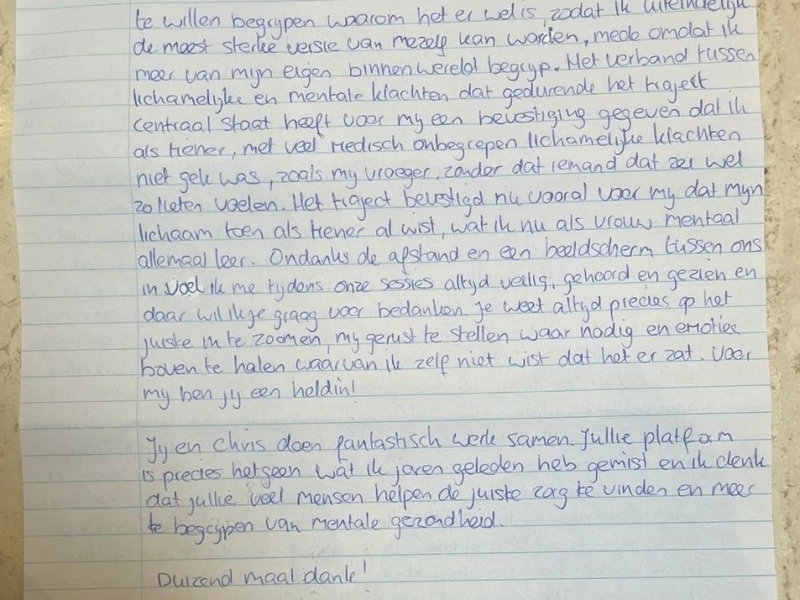 te willen begrijpen waarom het er wel is, zodat ik uiteindelijk
de meest sterke versie van mezelf kan worden, mede omdat ik
meer van mijn eigen binnenwereld begrijp. Het verband tussen
lichamelijke en mentale klachten dat gedurende het traject
centraal staat heeft voor mij een bevestiging gegeven dat ik
als tiener, met veel medisch onbegrepen lichamelijke klachten
niet gek was, zoals mij vroeger, zonder dat iemand dat zei wel
zo lieten voelen. Het traject bevestigd nu vooral voor mij dat mijn
lichaam toen als tiener al wist, wat ik nu als vrouw mentaal
allemaal leer. Ondanks de afstand en een beeldscherm tussen ons
in voel ik me tijdens onze sessies altijd veilig, gehoord en gezien en
daar wil ik je graag voor bedanken. Je weet altijd precies op het
juiste in te zoomen, mij gerust te stellen waar nodig en emoties
boven te halen waarvan ik zelf niet wist dat het er zat. Voor
mij ben jij een heldin!
Jij en Chris doen fantastisch werk samen. Jullie platform
is precies hetgeen wat ik jaren geleden heb gemist en ik denk
dat jullie veel mensen helpen de juiste zorg te vinden en meer
te begrijpen van mentale gezondheid.
Duizend maal dank!